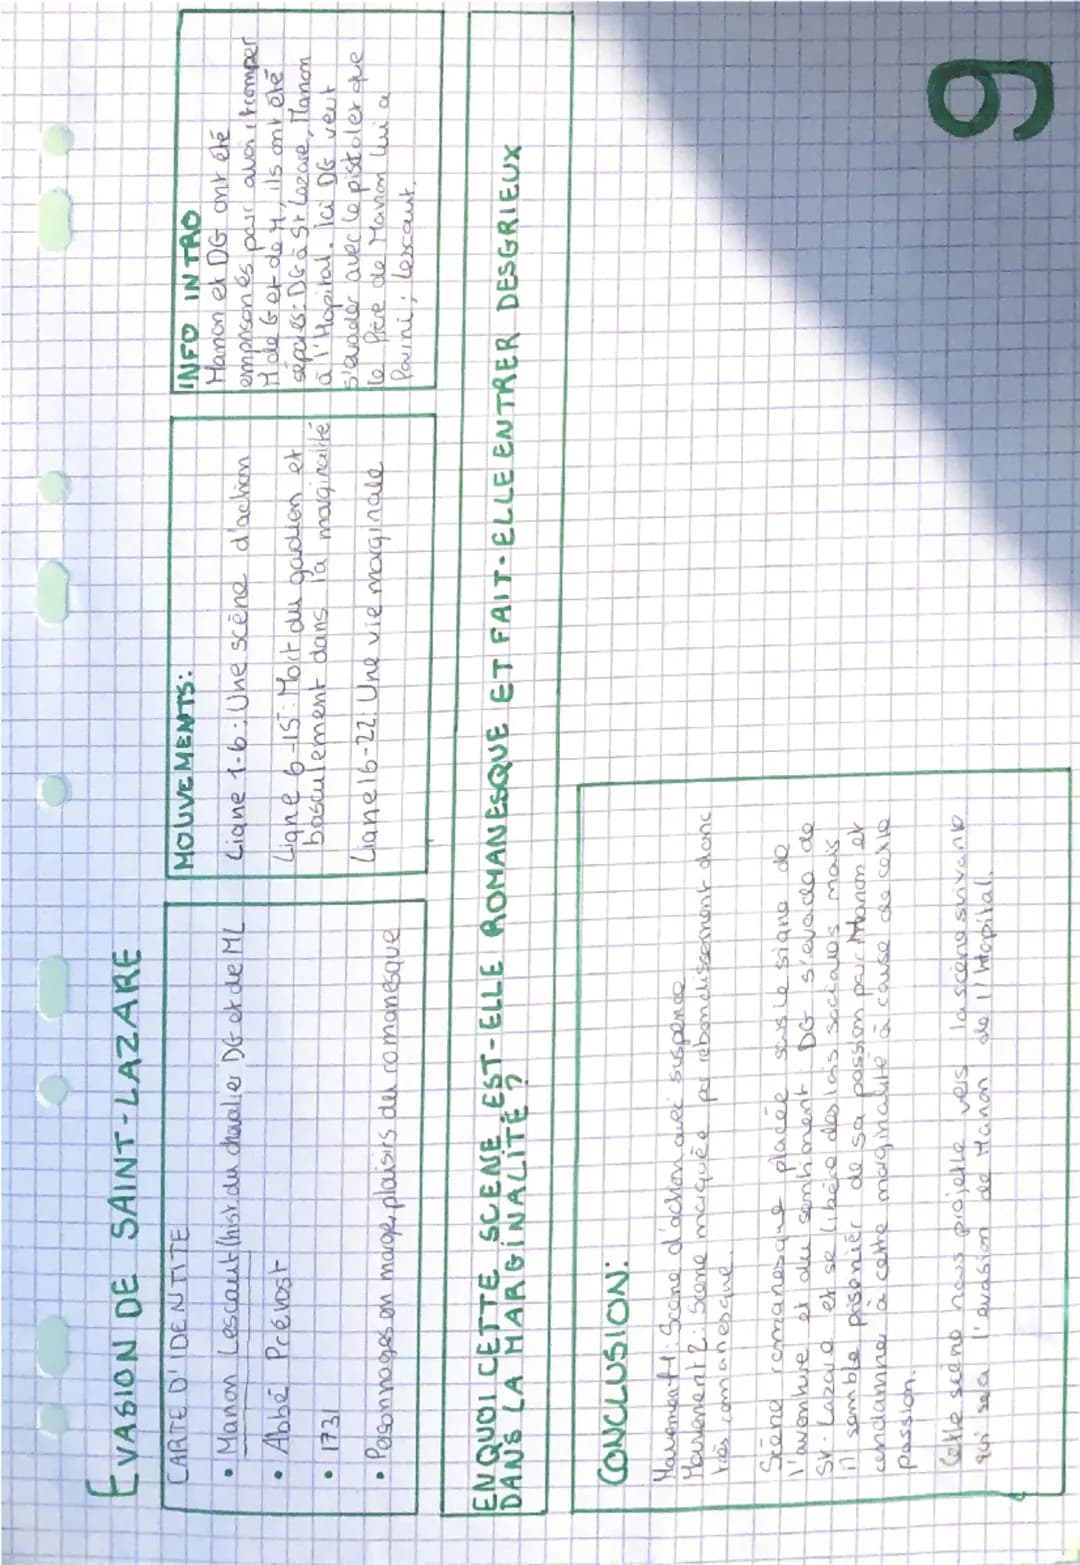 EVASION DE SAINT-LAZARE
CARTE D'IDENTITE
• Manon Lescaut (hist du chevalier DG et de ML
• Abbé Prévost
• 1731
• Personnages en marge, plaisirs du romanesque
MOUVEMENTS:
Ligne 1-6: Une scène d'action
Ligne 6-15: Mort du gardien et
basculement dans la marginalité
Ligne 16-22: Une vie marginale
INFO INTRO
Manon et DG ont été
emprisonés pour avoir tromper
M de G et de M, ils ont été
séparés: DG à St Lazare, Manon
à l'Hopital. Ici DG veut
s'évader avec le pistolet que
le frère de Manon lui a
fourni; Lescaut.
EN QUOI CETTE SCENE EST-ELLE ROMANESQUE ET FAIT-ELLE ENTRER DESGRIEUX
DANS LA MARGINALITÉ?
CONCLUSION:
Mouvement 1: Scène d'action avec suspence
Mouvement 2: Scène marquée par rebondissement donc
très romanesque
Scène romanesque placée sous le signe de
l'aventure et du sentiment. DG s'evade de
St-Lazare et se libère des lois sociales mais
il semble prisonier de sa passion par Manon et
condamner à cette marginalité à cause de cette
passion.
Cette scène nous projette vers la scène suivante
qui sera l'evasion de Manon de l'Hopital.
9